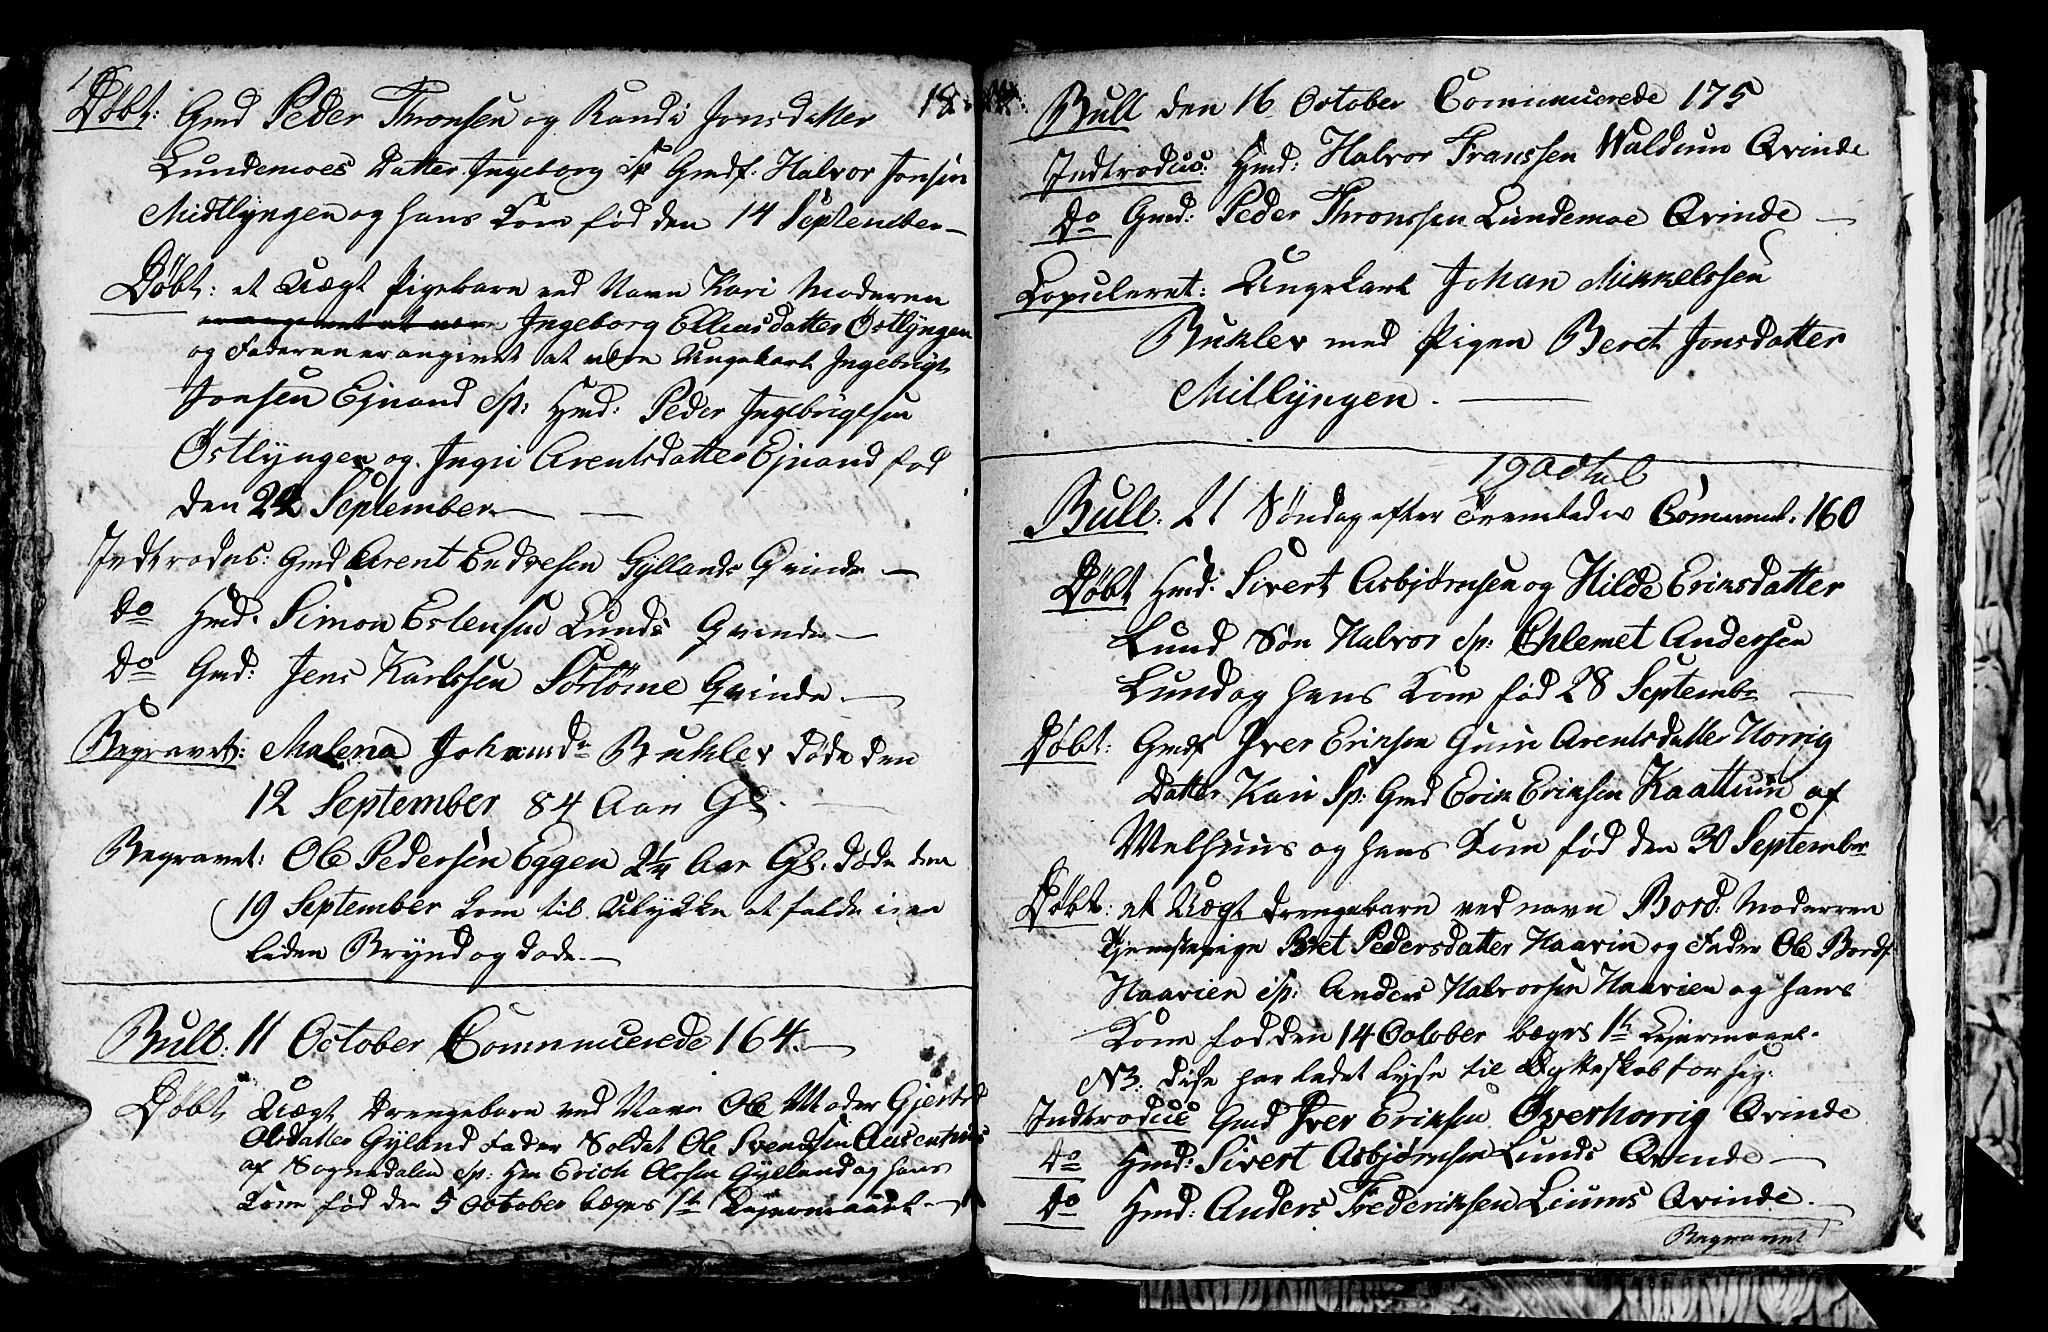 Døbt: Gmd Peder Thronsen og Randi Jonsdatter
Lundemoes datter Ingeborg Sp Gmdf: Halvor Jonsen
Midtlyngen og hans Kone fød den 14 September
Døbt: et Uægt Pigebarn ved Navn Kari Moderen
Ingeborg Ellensdatter Østlyngen
og Faderen er angivet at være Ungekarl Ingebrigt
Jonsen Ejnand Sp: Hmd: Peder Ingebrigtsen
Østlyngen og Ingri Arentsdatter Ejnand fød
den 24 September
Indtrodus: Gmd Arent Endresen Gyllands Qvinde
do Hmd. Simon Estensen Lunds Qvinde
do Gmd: Jens Karlssen Sørtømme Qvinde
Begravet: Malena Johansdr Bukler døde den
12 September 84 Aar Gl.
Begravet: Ole Pedersen Eggen 2¼ Aar Gl. døde den
19 September kom til Ulykke at falde i en
liden Brynd og døde.
Bull: 11 October Communicerede 164.
Døbt Uægt Drengebarn ved Navn Ole Moder Gjertrd
Olsdatter Gyland Fader Soldat Ole Svendsen
af Sognedalen Sp: Hm Erich Olssen Gylland og hans
Kone fød den 5 October begges 1te Leiermaal
Bull den 16 October Communicerede 175
Indtroduc: Hmd: Halvor Franssen Waldum Qvinde
do Gmd: Peder Thronssen Lundemoe Qvinde
Copuleret: Ungekarl Johan Mikkelssen
Bukler med Pigen Beret Jonsdatter
Mitlyngen.
19 Octob
Bull: 21 Søndag efter Tremtedes Comunnt. 160
Døbt Hmd: Sivert Asbjørnsen og Hilde Eriksdatter
Lund Søn Halvor Sp: Ehlemet Andersen
Lund og hans Kone fød 28 Septembr
Døbt: Gmdf Iver Eriksen Guru Arentsdatter Horrig
Datter Kari Sp: Gmd Erik Eriksen Kaattum af
Melhuus og hans Kone fød den 30 September
Døbt: et Uægt Drengebarn ved navn Bord: Moderren
Tjenstepige Bret Pedersdatter Haavin og Fader Ole Bordf
Haavien Sp: Anders Halvorsen Haavien og hans
Kone fød den 14 October begges 1te Lejermaal.
NB. Disse har ladet lyse til Ægteskab for sig.
Indtroduc Gmd Iver Eriksen Overhorrig Qvinde
do Hmd: Sivert Asbjørnsen Lunds Qvinde
do Hmd: Anders Frederiksen Liums Qvinde.
Begravet